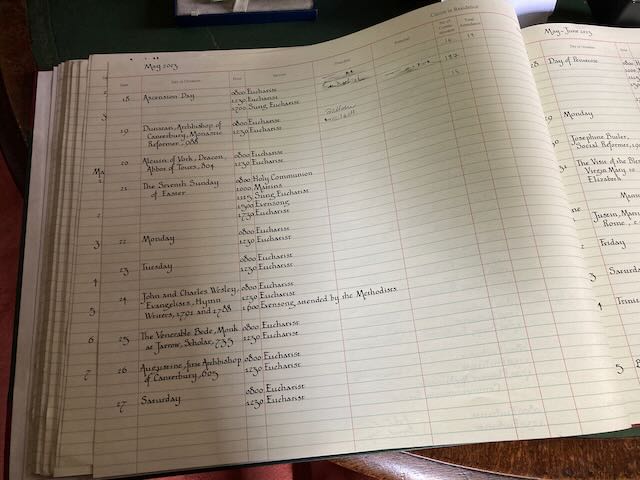 Canon in Residence
May 2023
Date
Day of Occasion
Hour
Service
Preacher
18 Ascension Day
0800 Eucharist
1230 Eucharist
1700 Sung Eucharist
19 Dunstan, Archbishop of
Canterbury, Monastic
Reformer, 988
0800 Eucharist
1230 Eucharist
20 Alcuin of York, Deacon,
Abbot of Tours, 804
0800 Eucharist
1230 Eucharist
21 The Seventh Sunday
of Easter
0800 Holy Communion
1000 Matins
1115 Sung Eucharist
1500 Evensong
1730 Eucharist
22 Monday
0800 Eucharist
1230 Eucharist
23 Tuesday
0800 Eucharist
1230 Eucharist
24 John and Charles Wesley,
Evangelists, Hymn
Writers, 1791 and 1788
0800 Eucharist
1230 Eucharist
1600 Evensong, attended by the Methodists
25 The Venerable Bede, Monk
at Jarrow, Scholar, 735
0800 Eucharist
1230 Eucharist
26 Augustine, first Archbishop
of Canterbury, 605
0800 Eucharist
1230 Eucharist
27 Saturday
0800 Eucharist
1230 Eucharist
Ma
3
4
5
6
7
May - June 2023
Day of Occasion
28 Day of Pentecost
29 Monday
30 Josephine Butler,
Social Reformer, 190
31 The Visit of the Bles
Virgin Mary to
Elizabeth
Justin, Mar
Rome, c.
Friday
3 Saturda
4 Trinit
5